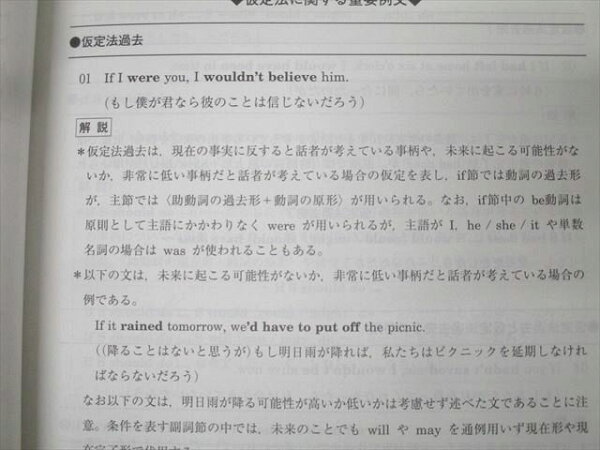 ◆仮定法に関する重要例文◆
●仮定法過去
01 If I were you, I wouldn't believe him.
(もし僕が君なら彼のことは信じないだろう)
解説
*仮定法過去は,現在の事実に反すると話者が考えている事柄や,未来に起こる可能性がな
いか,非常に低い事柄だと話者が考えている場合の仮定を表し,if節では動詞の過去形
が,主節では〈助動詞の過去形+動詞の原形〉が用いられる。なお,if節中の be動詞は
原則として主語にかかわりなく were が用いられるが,主語が I, he / she / it や単数
名詞の場合は was が使われることもある。
*以下の文は,未来に起こる可能性がないか,非常に低い事柄だと話者が考えている場合の
例である。
If it rained tomorrow, we'd have to put off the picnic.
((降ることはないと思うが)もし明日雨が降れば,私たちはピクニックを延期しなけれ
ばならないだろう)
なお以下の文は,明日雨が降る可能性が高いか低いかは考慮せず述べた文であることに注
意。条件を表す副詞節の中では,未来のことでも will や may を通例用いず現在形や現